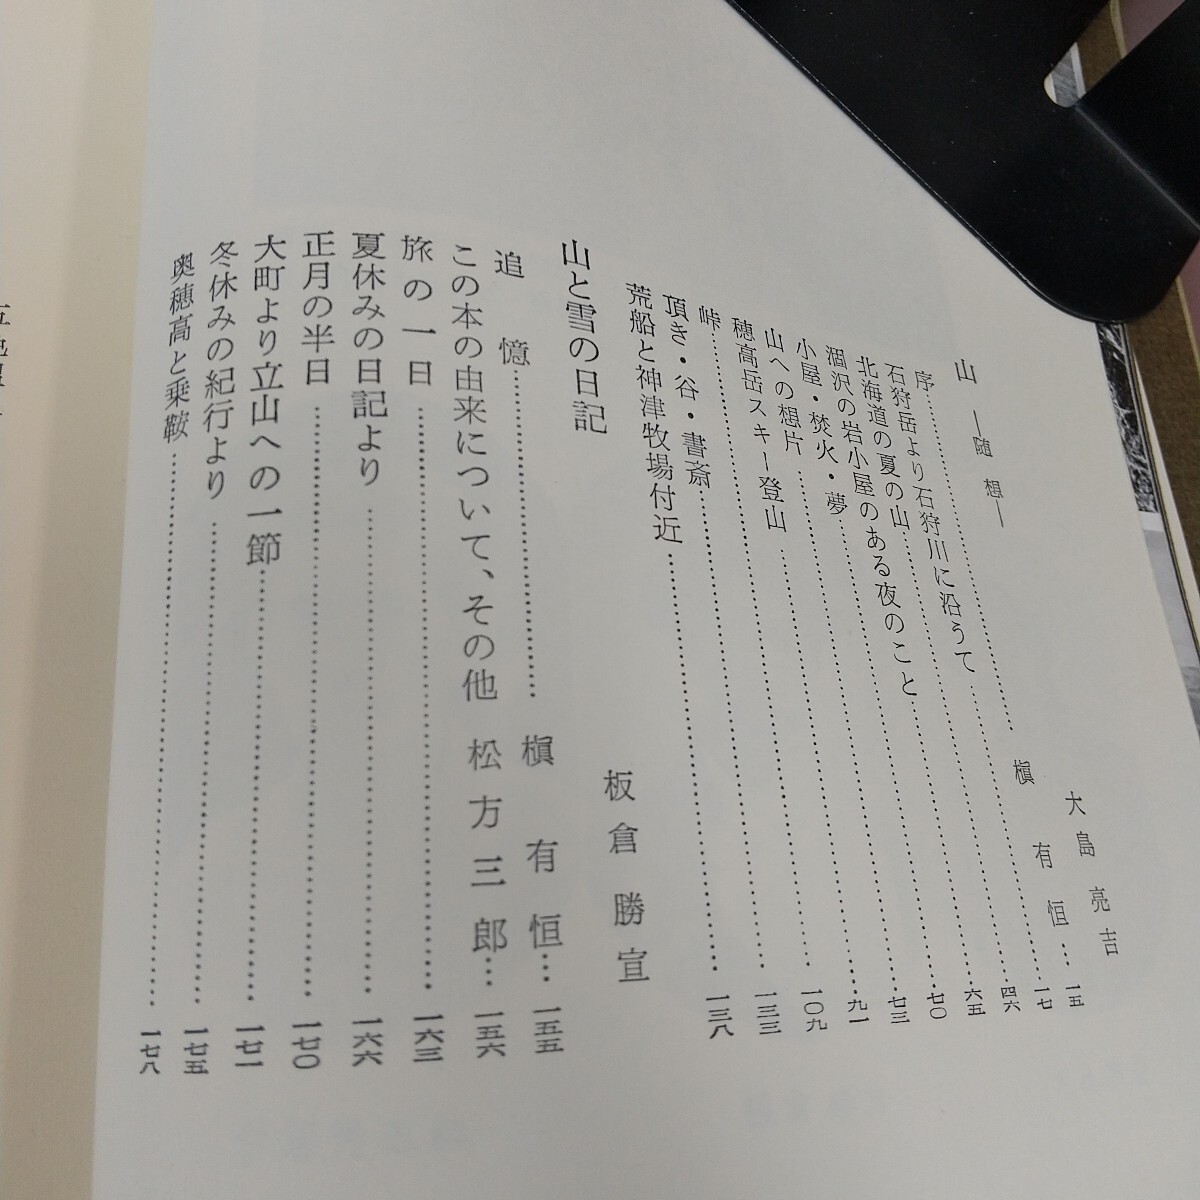 山 ―随想― 大島亮吉
序……槇有恒…一五
石狩岳より石狩川に沿うて……一七
北海道の夏の山……四六
涸沢の岩小屋のある夜のこと……六五
小屋・焚火・夢……七〇
山への想片……七三
穂高岳スキー登山……九一
峠……一〇九
頂き・谷・書斎……一三三
荒船と神津牧場付近……一三八
山と雪の日記 板倉勝宣
追憶……槇有恒…一五五
この本の由来について、その他 松方三郎…一五六
旅の一日……一六三
夏休みの日記より……一六六
正月の半日……一七〇
大町より立山への一節……一七一
冬休みの紀行より……一七五
奥穂高と乗鞍……一七八